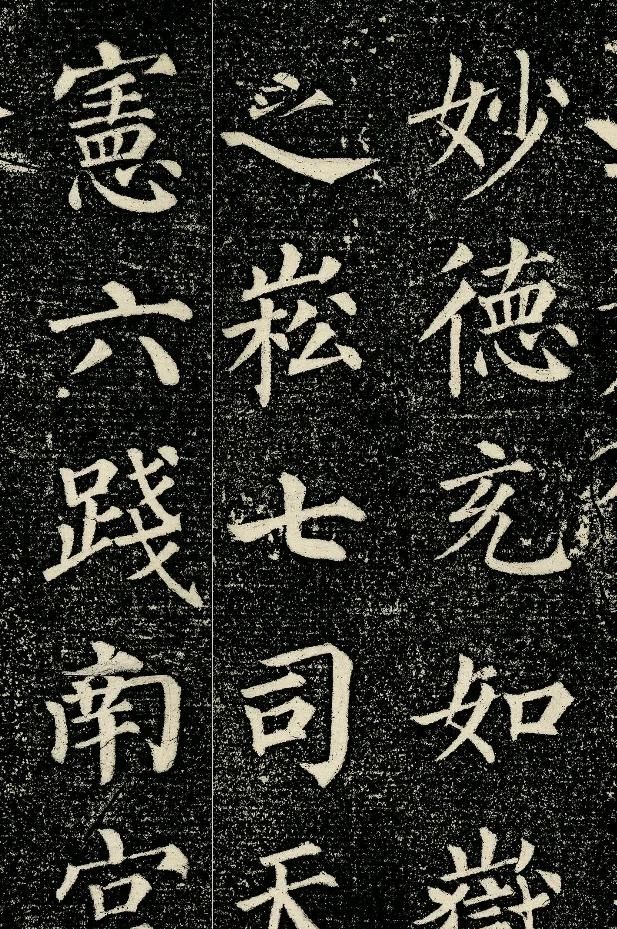 妙德充如嶽
之崧七司天
憲六踐南宮